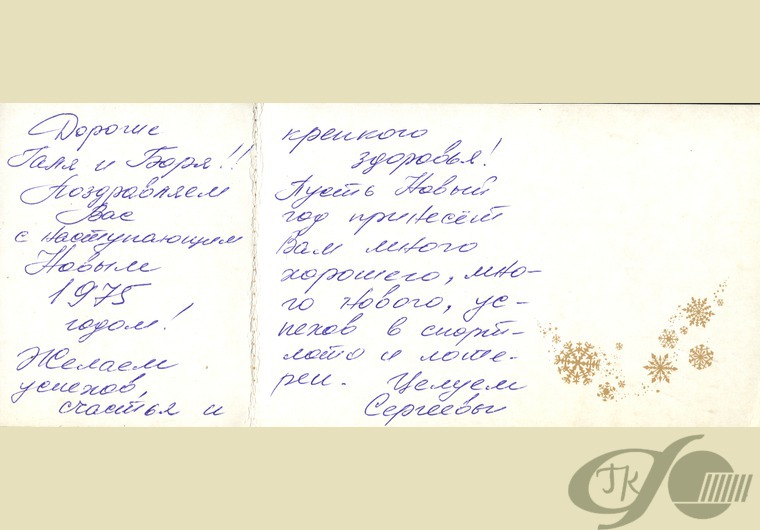 Дорогие
Галя и Боря!!
Поздравляем
Вас
с наступающим
Новым
1975
годом!
Желаем
успехов,
счастья и
крепкого
здоровья!
Пусть Новый
год принесёт
Вам много
хорошего, мно-
го нового, ус-
пехов в спорт-
лото и лоте-
реи. Целуем
Сергеевы
ГК